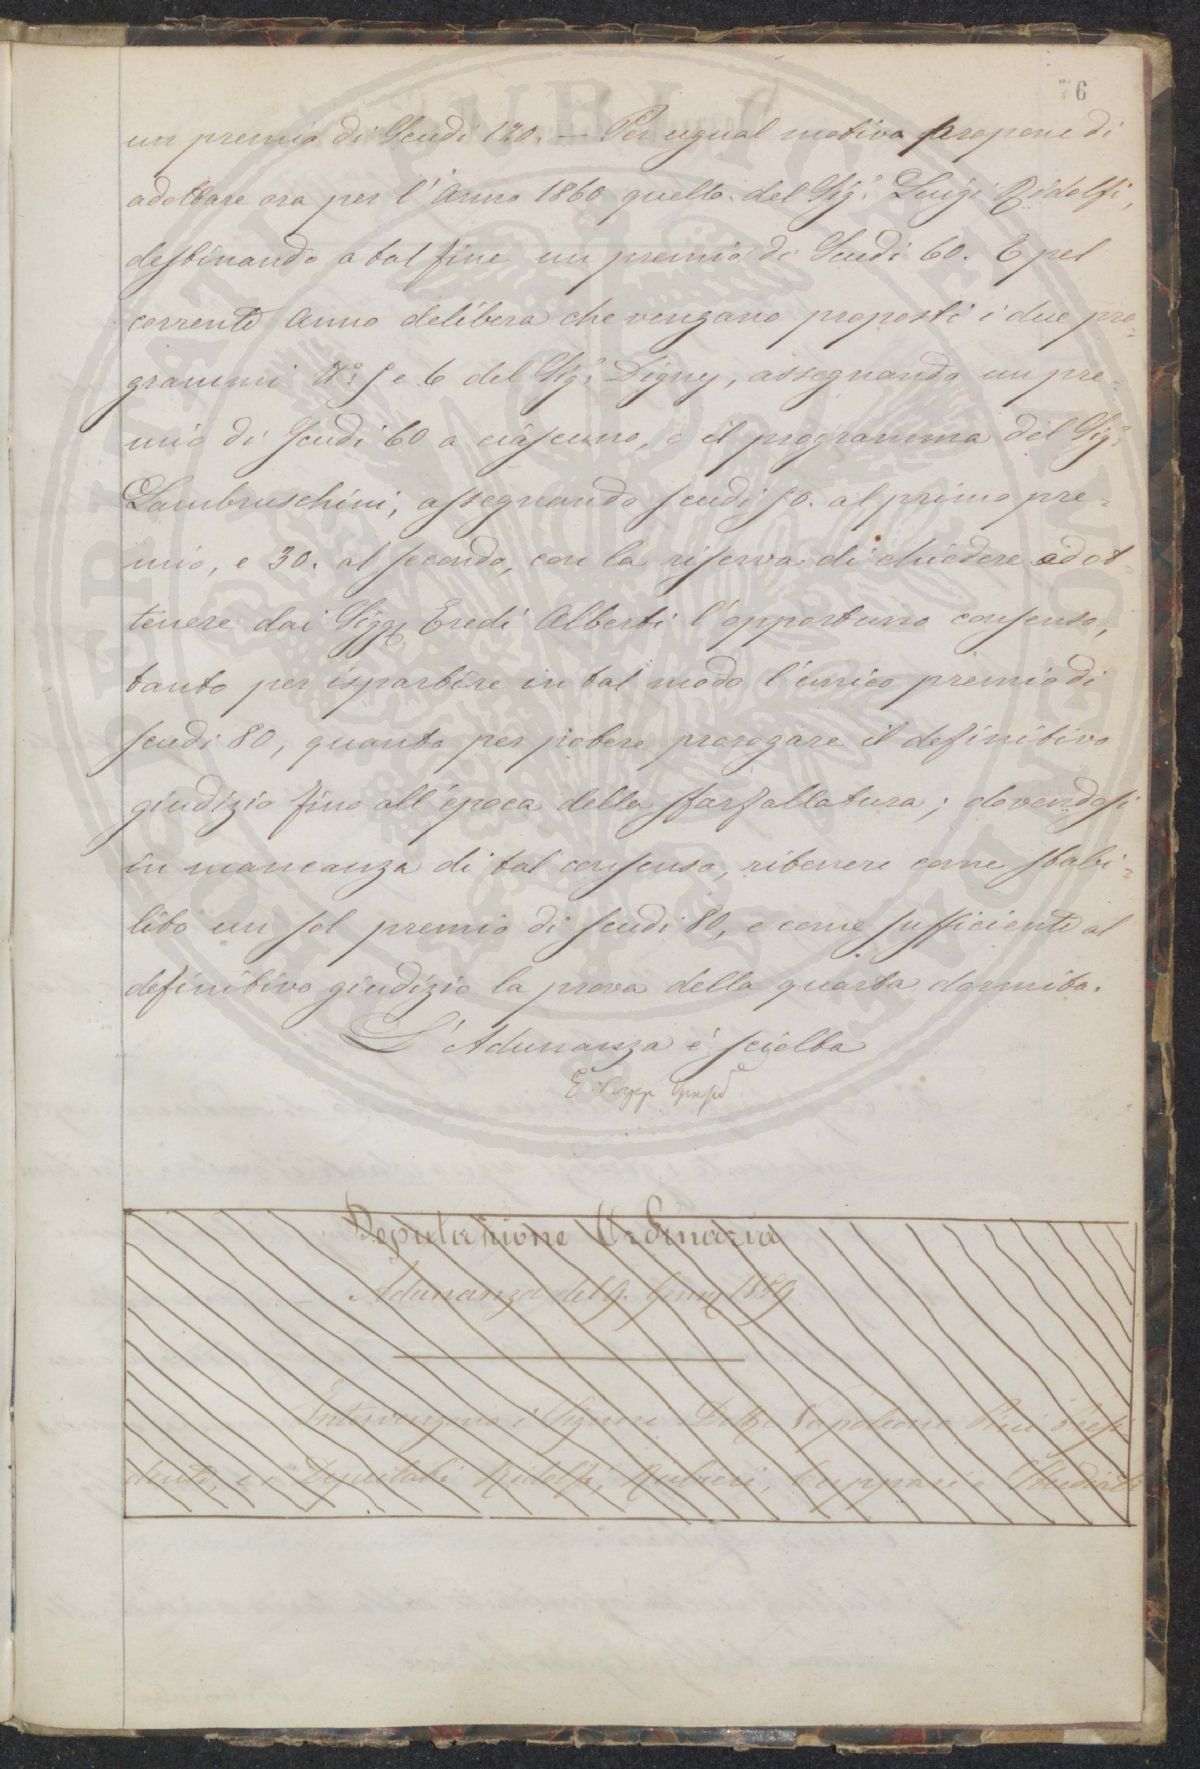 76
un premio di Scudi 120. — Per ugual motivo propone di
adottare ora per l'Anno 1860 quello del Sig.r Luigi Ridolfi,
destinando a tal fine un premio di Scudi 60. E pel
corrente Anno delibera che vengano proposti i due pro=
grammi N.i 5 e 6 del Sig.r Digny, assegnando un pre=
mio di Scudi 60 a ciascuno, e il programma del Sig.r
Lambruschini, assegnando scudi 50. al primo pre=
mio, e 30. al secondo, con la riserva di chiedere ed ot=
tenere dai Sigg. Eredi Alberti l'opportuno consenso,
tanto per ispartire in tal modo l'unico premio di
scudi 80, quanto per potere prorogare il definitivo
giudizio fino all'epoca della sfarfallatura; dovendosi
in mancanza di tal consenso, ritenere come stabi=
lito un sol premio di scudi 80, e come sufficiente al
definitivo giudizio la prova della quarta dormita.
L'Adunanza è sciolta
Deputazione Ordinaria
Adunanza del 9. Giug. 1859
Intervengono i Signori Dott. Napoleone Pini Presi
dente, e i Deputati Ridolfi, Rubieri, Cuppari e Studiati